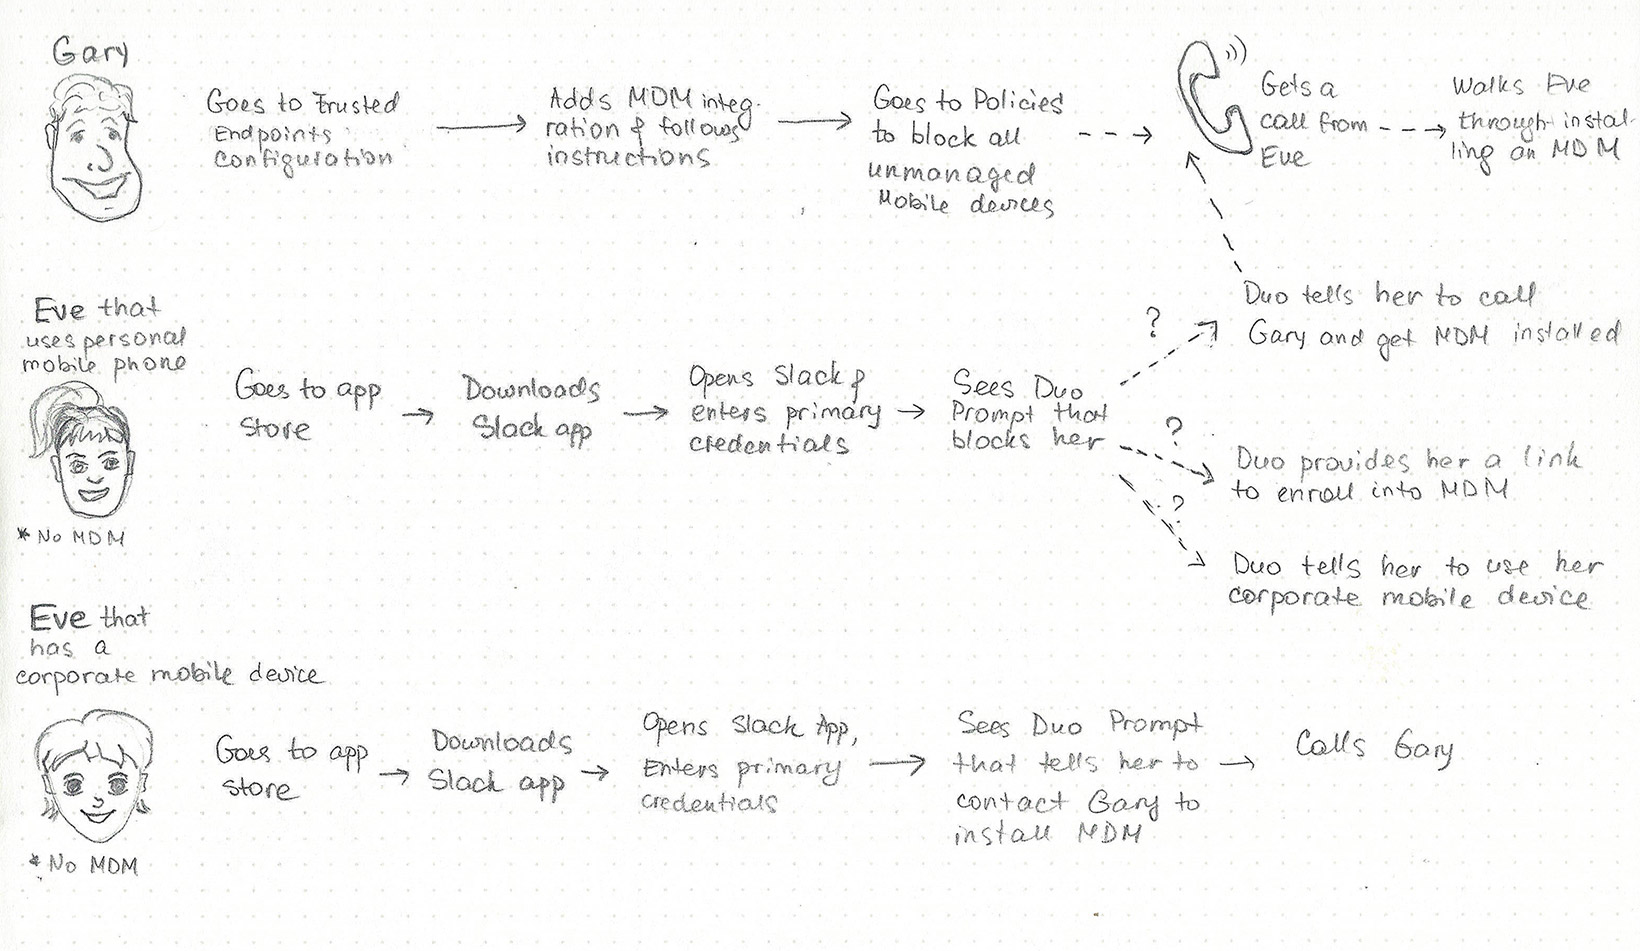 Gary
Goes to Trusted
Endpoints
configuration
Adds MDM integ-
ration & follows
instructions
Goes to Policies
to block all
unmanaged
Mobile devices
Gets a
call from
Eve
Walks Eve
through instal-
ling an MDM
Eve that
uses personal
mobile phone
* No MDM
Goes to app
store
Downloads
Slack app
Opens Slack &
enters primary
credentials
Sees Duo
Prompt that
blocks her
?
Duo tells her to call
Gary and get MDM installed
?
Duo provides her a link
to enroll into MDM
?
Duo tells her to use her
corporate mobile device
Eve that
has a
corporate mobile device
* No MDM
Goes to app
store
Downloads
Slack app
Opens Slack App,
Enters primary
credentials
Sees Duo Prompt
that tells her to
contact Gary to
install MDM
Calls Gary